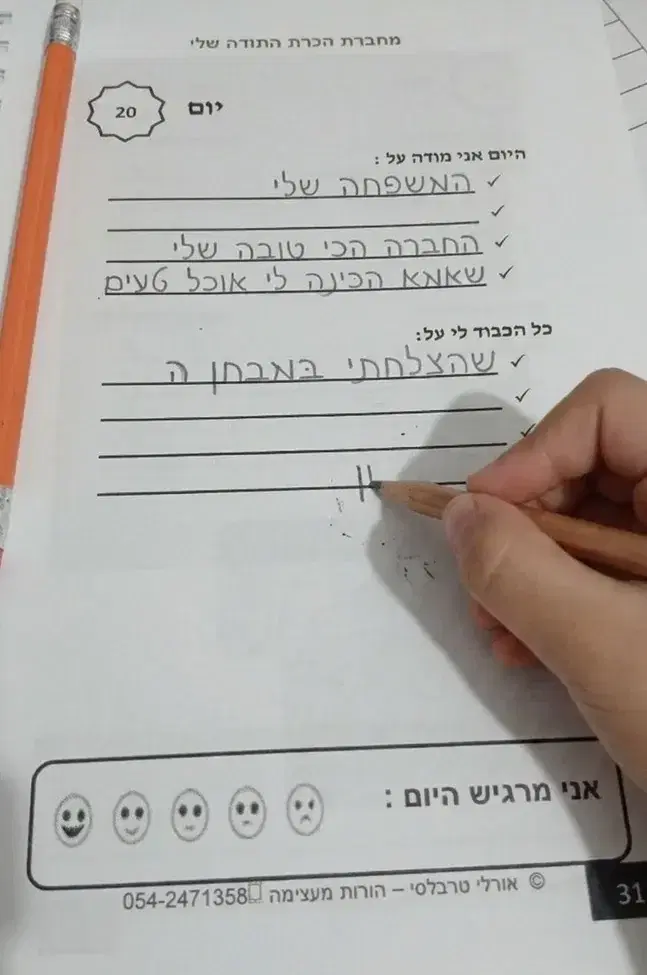 מחברת הכרת התודה שלי
יום 20
היום אני מודה על :
✓ המשפחה שלי
✓
✓ החברה הכי טובה שלי
✓ שאמא הכינה לי אוכל טעים
כל הכבוד לי על:
✓ שהצלחתי במבחן ה
✓
✓
אני מרגיש היום :
© אורלי טרבלסי – הורות מעצימה 054-2471358
31